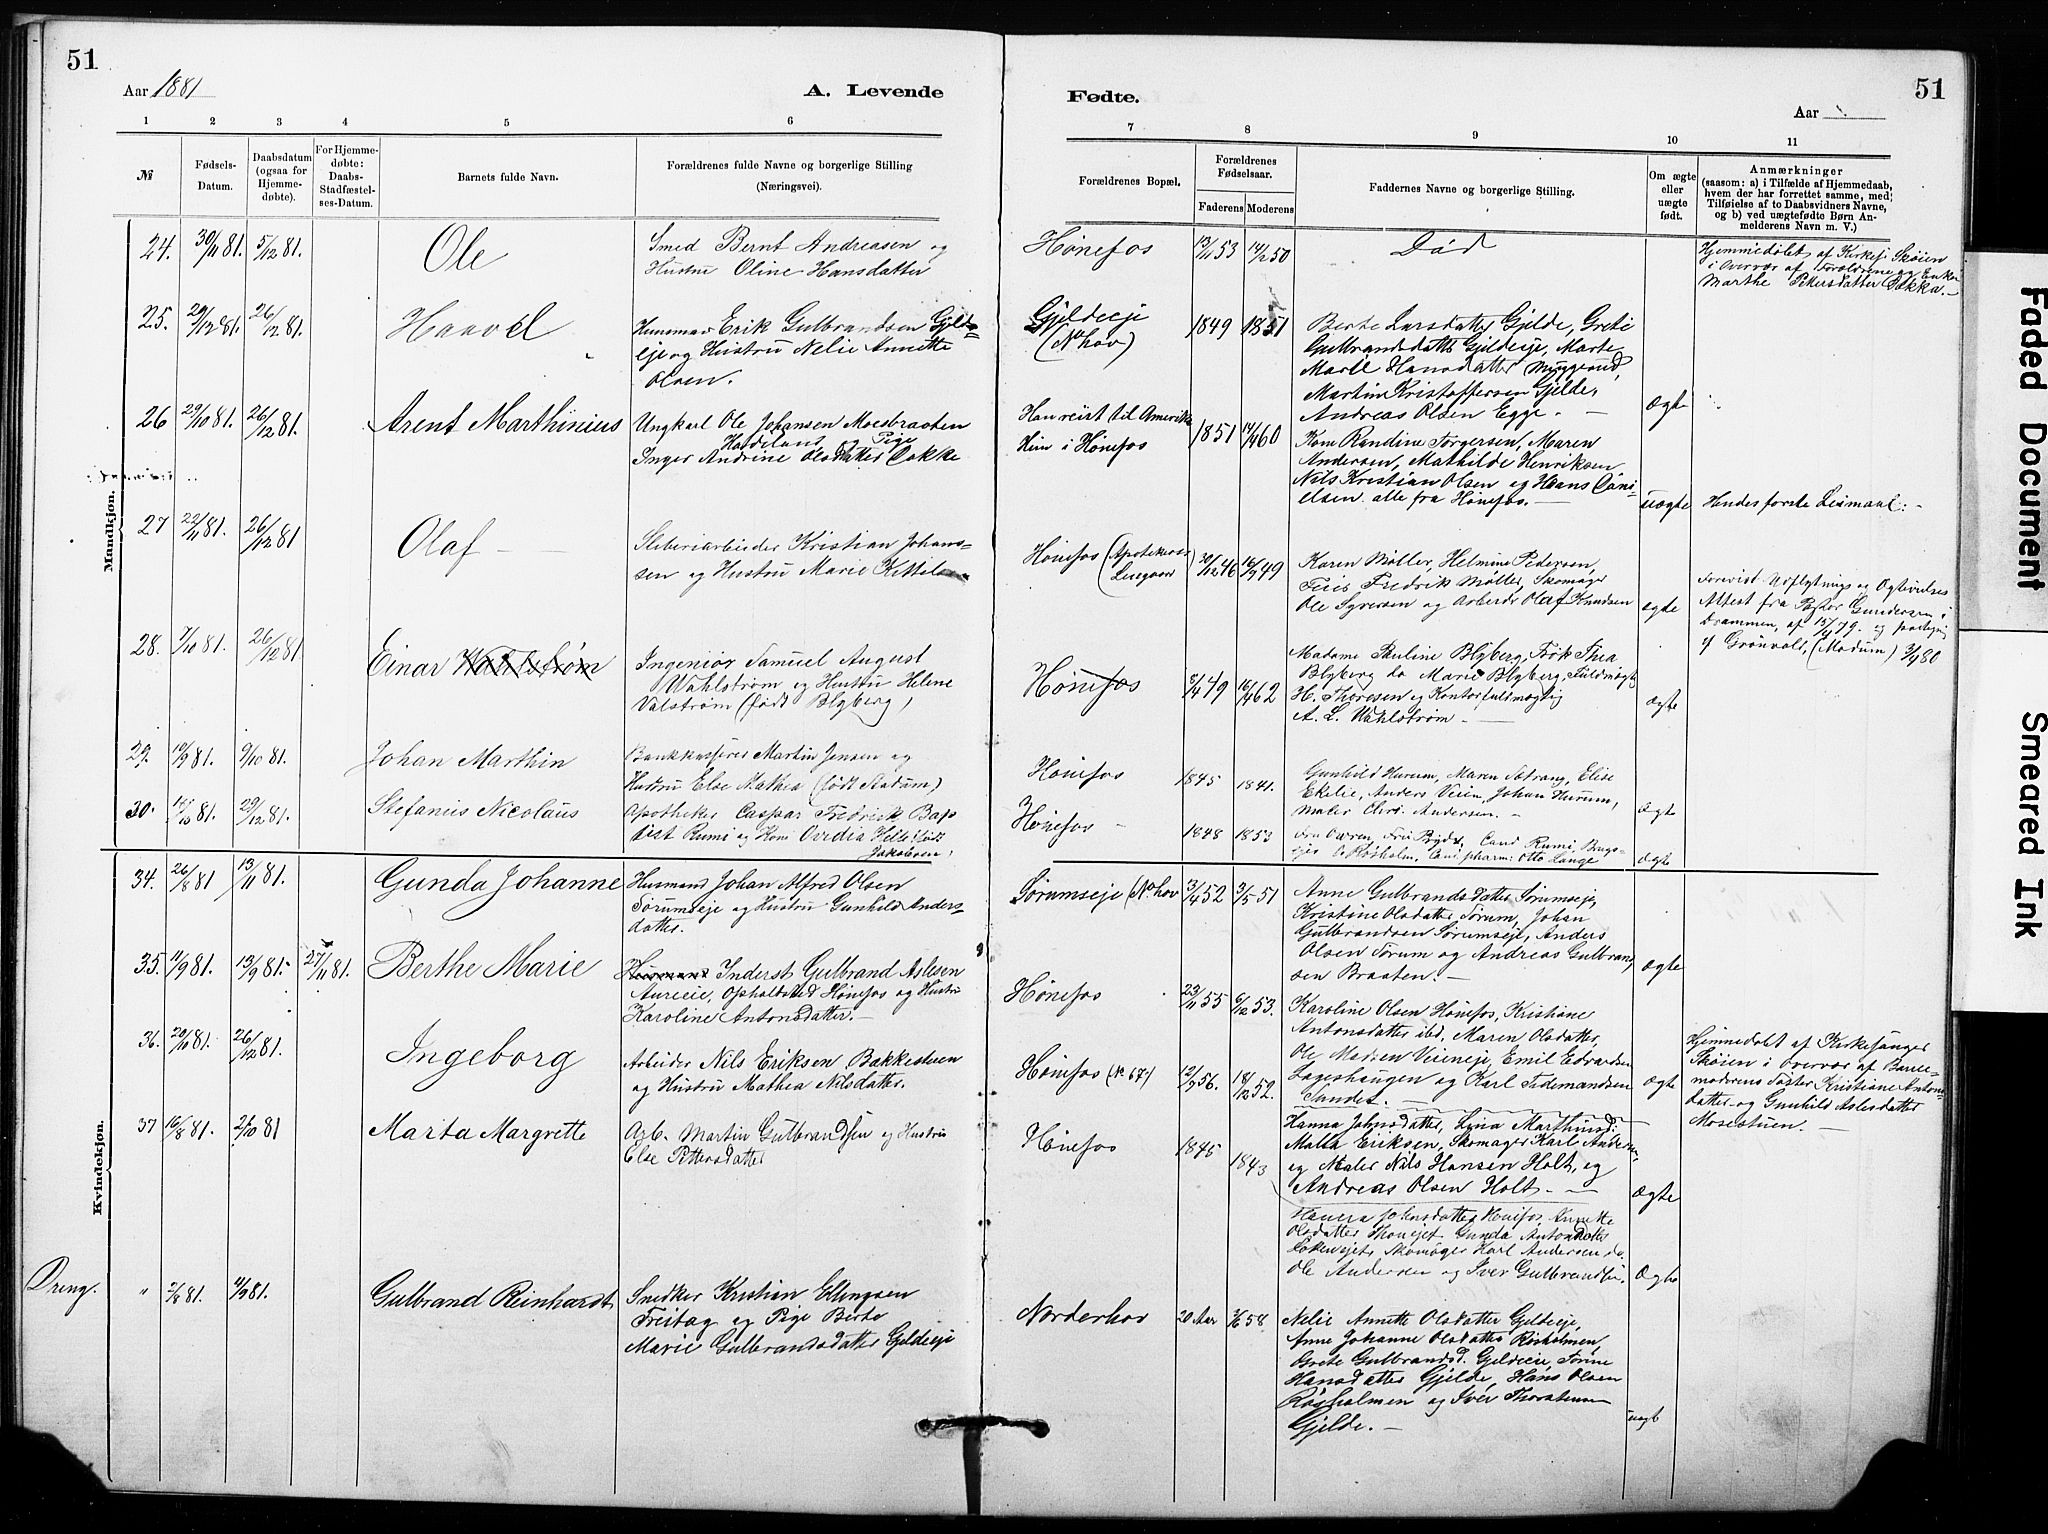 51
Aar 1881
A. Levende
1 2 3 4 5 6
№
Fødsels-Datum.
Daabsdatum (ogsaa for Hjemmedøbte).
For Hjemmedøbte: Daabs-Stadfæstelses-Datum.
Barnets fulde Navn.
Forældrenes fulde Navne og borgerlige Stilling
(Næringsvei).
Mandkjøn.
24. 30/11 81. 5/12 81. Ole
Smed Bernt Andreasen og
Hustru Oline Hansdatter
25. 29/12 81. 26/12 81. Haavel
Husmand Erik Gulbrandsen Gjelde-
eje og Hustru Nelie Annette
Olsen.
26 29/10 81. 26/12 81. Arent Marthinius
Ungkarl Ole Johansen Moesbraaten
Hadeland og Pige
Inger Andrine Olsdatter Bakke
27 22/11 81. 26/12 81 Olaf
Sliberiarbeider Kristian Johans-
sen og Hustru Marie Kittels
28. 7/10 81. 26/12 81 Einar Wahlstrøm
Ingeniør Samuel August
Wahlstrøm og Hustru Helene
Valstrøm (født Blyberg)
29. 10/9 81. 9/10 81. Johan Marthin
Bankkasserer Martin Jensen og
Hustru Else Mathea (født Stadum)
30. 15/10 81. 29/12 81. Stefanus Nicolaus
Apotheker Caspar Fredrik Bap
tist Rumi og Kone Ovidia Hille (født
Jakobsen)
Kvindekjøn.
34. 26/8 81 13/11 81. Gunda Johanne
Husmand Johan Alfred Olsen
Sørumseje og Hustru Gunhild Anders-
datter.
35. 11/9 81. 13/9 81. 27/11 81. Berthe Marie
Husmand Inderst Gulbrand Aslesen
Aureeie, Opholdsted Hønefos og Hustru
Karoline Antonsdatter.
36. 20/10 81. 26/12 81. Ingeborg
Arbeider Nils Eriksen Bakkesteen
og Hustru Mathea Nilsdatter.
37 16/8 81. 2/10 81 Marta Margrette
Arb. Martin Gulbrandsen og Hustru
Else Pettersdatter
Dreng.
" 2/8 81. 4/9 81. Gulbrand Reinhardt
Snedker Kristian Ellingsen
Freitag og Pige Berte
Marie Gulbrandsdatter Gjeldeeje
51
Fødte.
Aar
7 8 9 10 11
Forældrenes Bopæl.
Forældrenes Fødselsaar.
Faderens Moderens
Faddernes Navne og borgerlige Stilling.
Om ægte eller uægte født.
Anmærkninger
(saasom: a) i Tilfælde af Hjemmedaab,
hvem der har forrettet samme, med
Tilføielse af to Daabsvidners Navne,
og b) ved uægtefødte Børn An-
melderens Navn m. V.)
Hønefos 13/11 53 14/2 50 Død
Hjemmedøbt af Kirkes. Skøien
i Overvær af Forældrene og Enke
Marthe Pettersdatter Bakka.
Gjeldeeje
(N.hov) 1849 1851
Berte Larsdatter Gjelde, Grete
Gulbrandsdatter Gjeldeeje, Marte
Marie Hansdatter Muggerud,
Martin Kristoffersen Gjelde,
Andreas Olsen Egge.
Ægte
Han reist til Amerika
Hun i Hønefos 1851 14/4 60
Kone Randine Torgersen, Maren
Andersen, Mathilde Henriksen
Nils Kristian Olsen og Hans Dani-
elsen alle fra Hønefos.
Uægte
Hendes første Leiemaal.
Hønefos (Apothekerens 20/12 46 16/9 49
Karen Møller, Helmine Pedersen,
Fredrik Møller, Skomager
Ole Syversen og Arbeider Olaf Knudsen
ægte
Forevist Udflytnings og Ægtevielses
Attest fra Pastor Gundersen i
Drammen, af 15/4 79. og
Grønvold, (Modum) 3/4 80
Hønefos 8/4 49 16/4 62
Madame Pauline Blyberg, Frøk Thea
Blyberg do Marie Blyberg, Fuldmægtig
H. Thoresen og Kontorfuldmægtig
A. L. Wahlstrøm
ægte
Hønefos 1845 1841.
Gunhild Hurum, Maren Sørang, Elise
Ekelie, Anders Veien, Johan Hurum,
Maler Chr. Andersen.
Ægte
Hønefos 1848 1853
Cand Rumi, Brugs-
ejer O. Røsholm, Cand pharm: Otto Lange
ægte
Sørumseje (N.hov 13/4 52 3/5 51
Anne Gulbrandsdatter Sørumseje,
Kristine Olsdatter Sørum, Johan
Gulbrandsen Sørumseje, Anders
Olsen Sørum og Andreas Gulbrand-
sen Braaten.
ægte
Hønefos 23/11 55 6/12 53.
Karoline Olsen Hønefos, Kristiane
Antonsdatter ibd, Maren Olsdatter,
Ole Madsen Veieneje, Emil Edvardsen
Lageshaugen og Karl Tidemandsen
Sandet.
ægte
Hjemmedøbt af Kirkesanger
Skøien i Overvær af Barne-
moderens Søster Kristiane Antons-
datter og Gunhild Aslesdatter
Mosestuen.
Hønefos (N. 67) 12/9 56. 18/12 52.
Hanna Johnsdatter, Lina Marthinsd:
Malla Eriksen, Skomager Karl Anders-
og Maler Nils Hansen Holt, og
Andreas Olsen Holt.
Ægte
Hønefos 1845 1843
Hanna Johnsdatter Hønefos, Annette
Olsdatter Gunda Antonsdatter
Skomager Karl Andersen do
Ole Andersen og Iver Gulbrandsen.
Ægte
Norderhov 20 Aar 58
Nelie Annette Olsdatter Gjeldeeje,
Anne Johanne Olsdatter Røsholmen,
Grete Gulbrandsd. Gjeldeeie, Torine
Hansdatter Gjelde, Hans Olsen
Røsholmen og Iver Thorstensen
Gjelde.
uægte
Faded Document
Smeared Ink